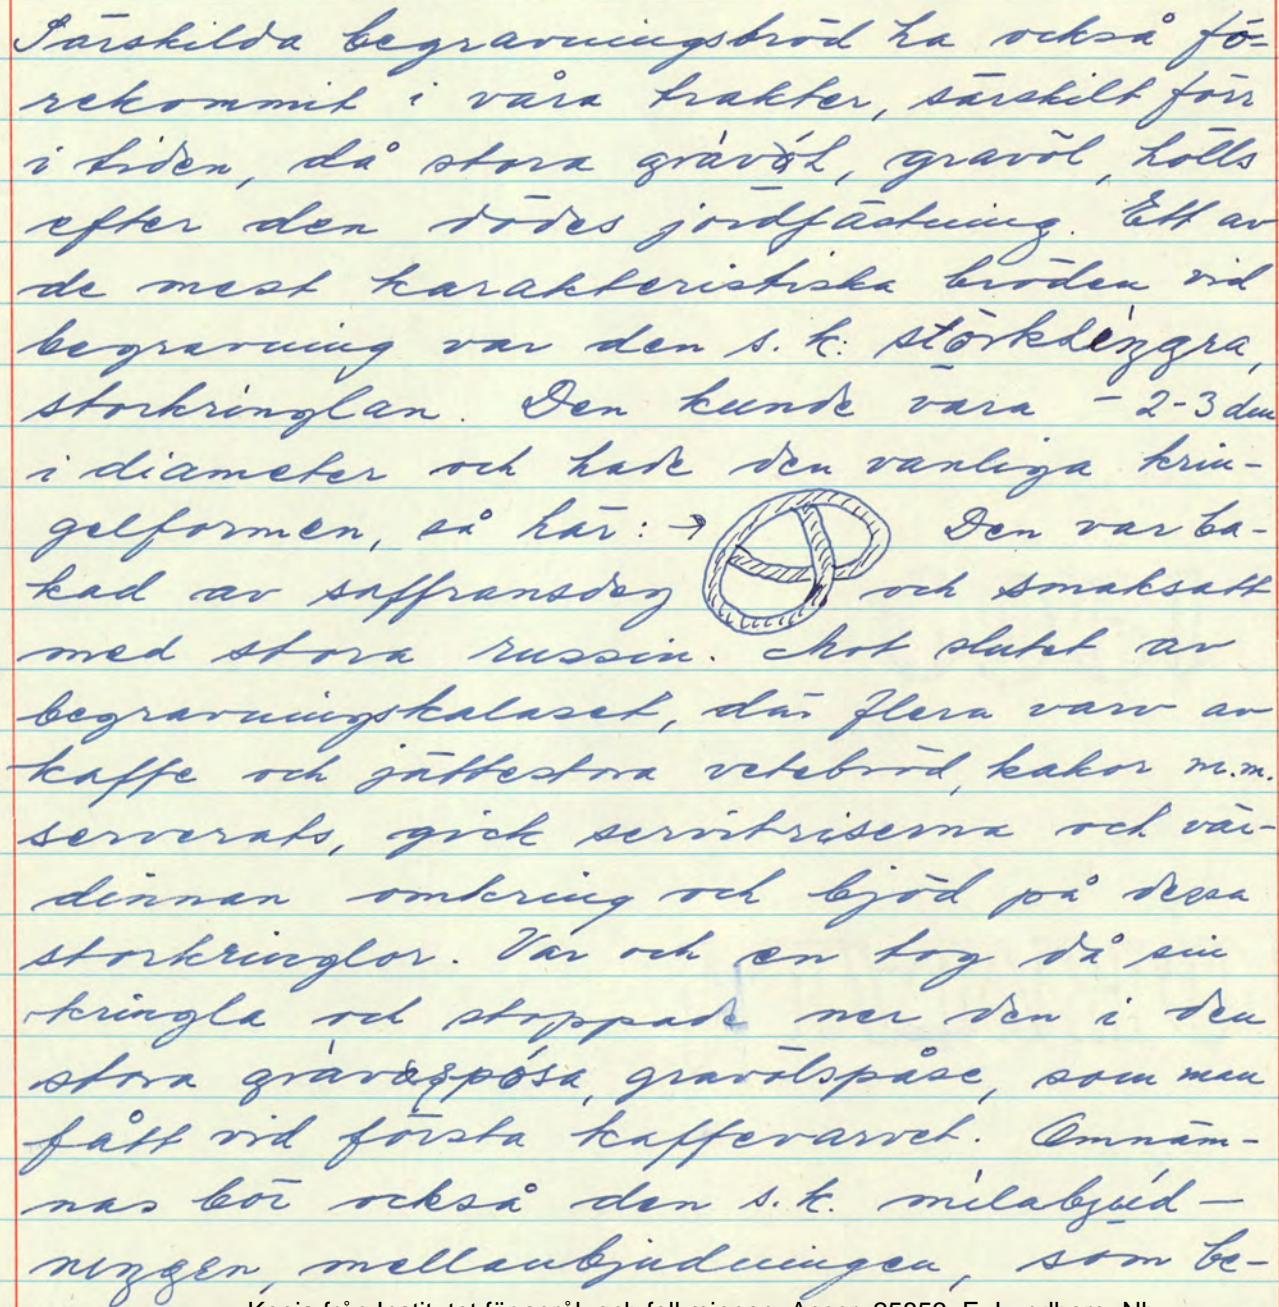 Särskilda begravningsbröd ha också fö-
rekommit i våra trakter, särskilt förr
i tiden, då stora gravöl, hölls
efter den dödes jordfästning. Ett av
de mest karakteristiska bröden vid
begravning var den s. k:
storkringlan. Den kunde vara - 2-3 dm
i diameter och hade den vanliga krin-
gelformen, så här: → Den var ba-
kad av saffransdeg och smaksatt
med stora russin. Mot slutet av
begravningskalaset, där flera varv av
kaffe och jättestora vetebröd, kakor m.m.
serverats, gick servitriserna och vär-
dinnan omkring och bjöd på dessa
storkringlor. Var och en tog då sin
kringla och stoppade ner den i den
stora gravölspåse, som man
fått vid första kaffevarvet. Omnäm-
nas bör också den s. k. milabjúd-
nizgen, mellanbjudningen, som be-